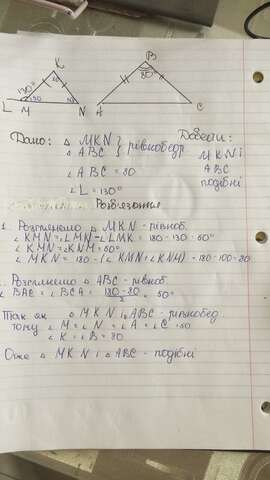 K
B
130°
80
50
80°
L M N A C
Дано: △ MKN } рівнобедр
△ ABC
Довести:
MKN і
ABC
подібні
∠ABC = 80
∠L = 130°
Розв'язання
1. Розглянемо △ MKN - рівноб.
∠KMN = ∠LMN - ∠LMK = 180-130=50°
∠KMN = ∠KNM = 50°
∠MKN = 180 - (∠KMN + ∠KNM) = 180-100=80
Розглянемо △ ABC - рівноб.
∠BAC = ∠BCA = 180-80 / 2 = 50°
Так як △ MKN і △ ABC - рівнобед.
тому ∠M = ∠N = ∠A = ∠C = 50
∠K = ∠B = 80
Отже △ MKN і △ ABC - подібні